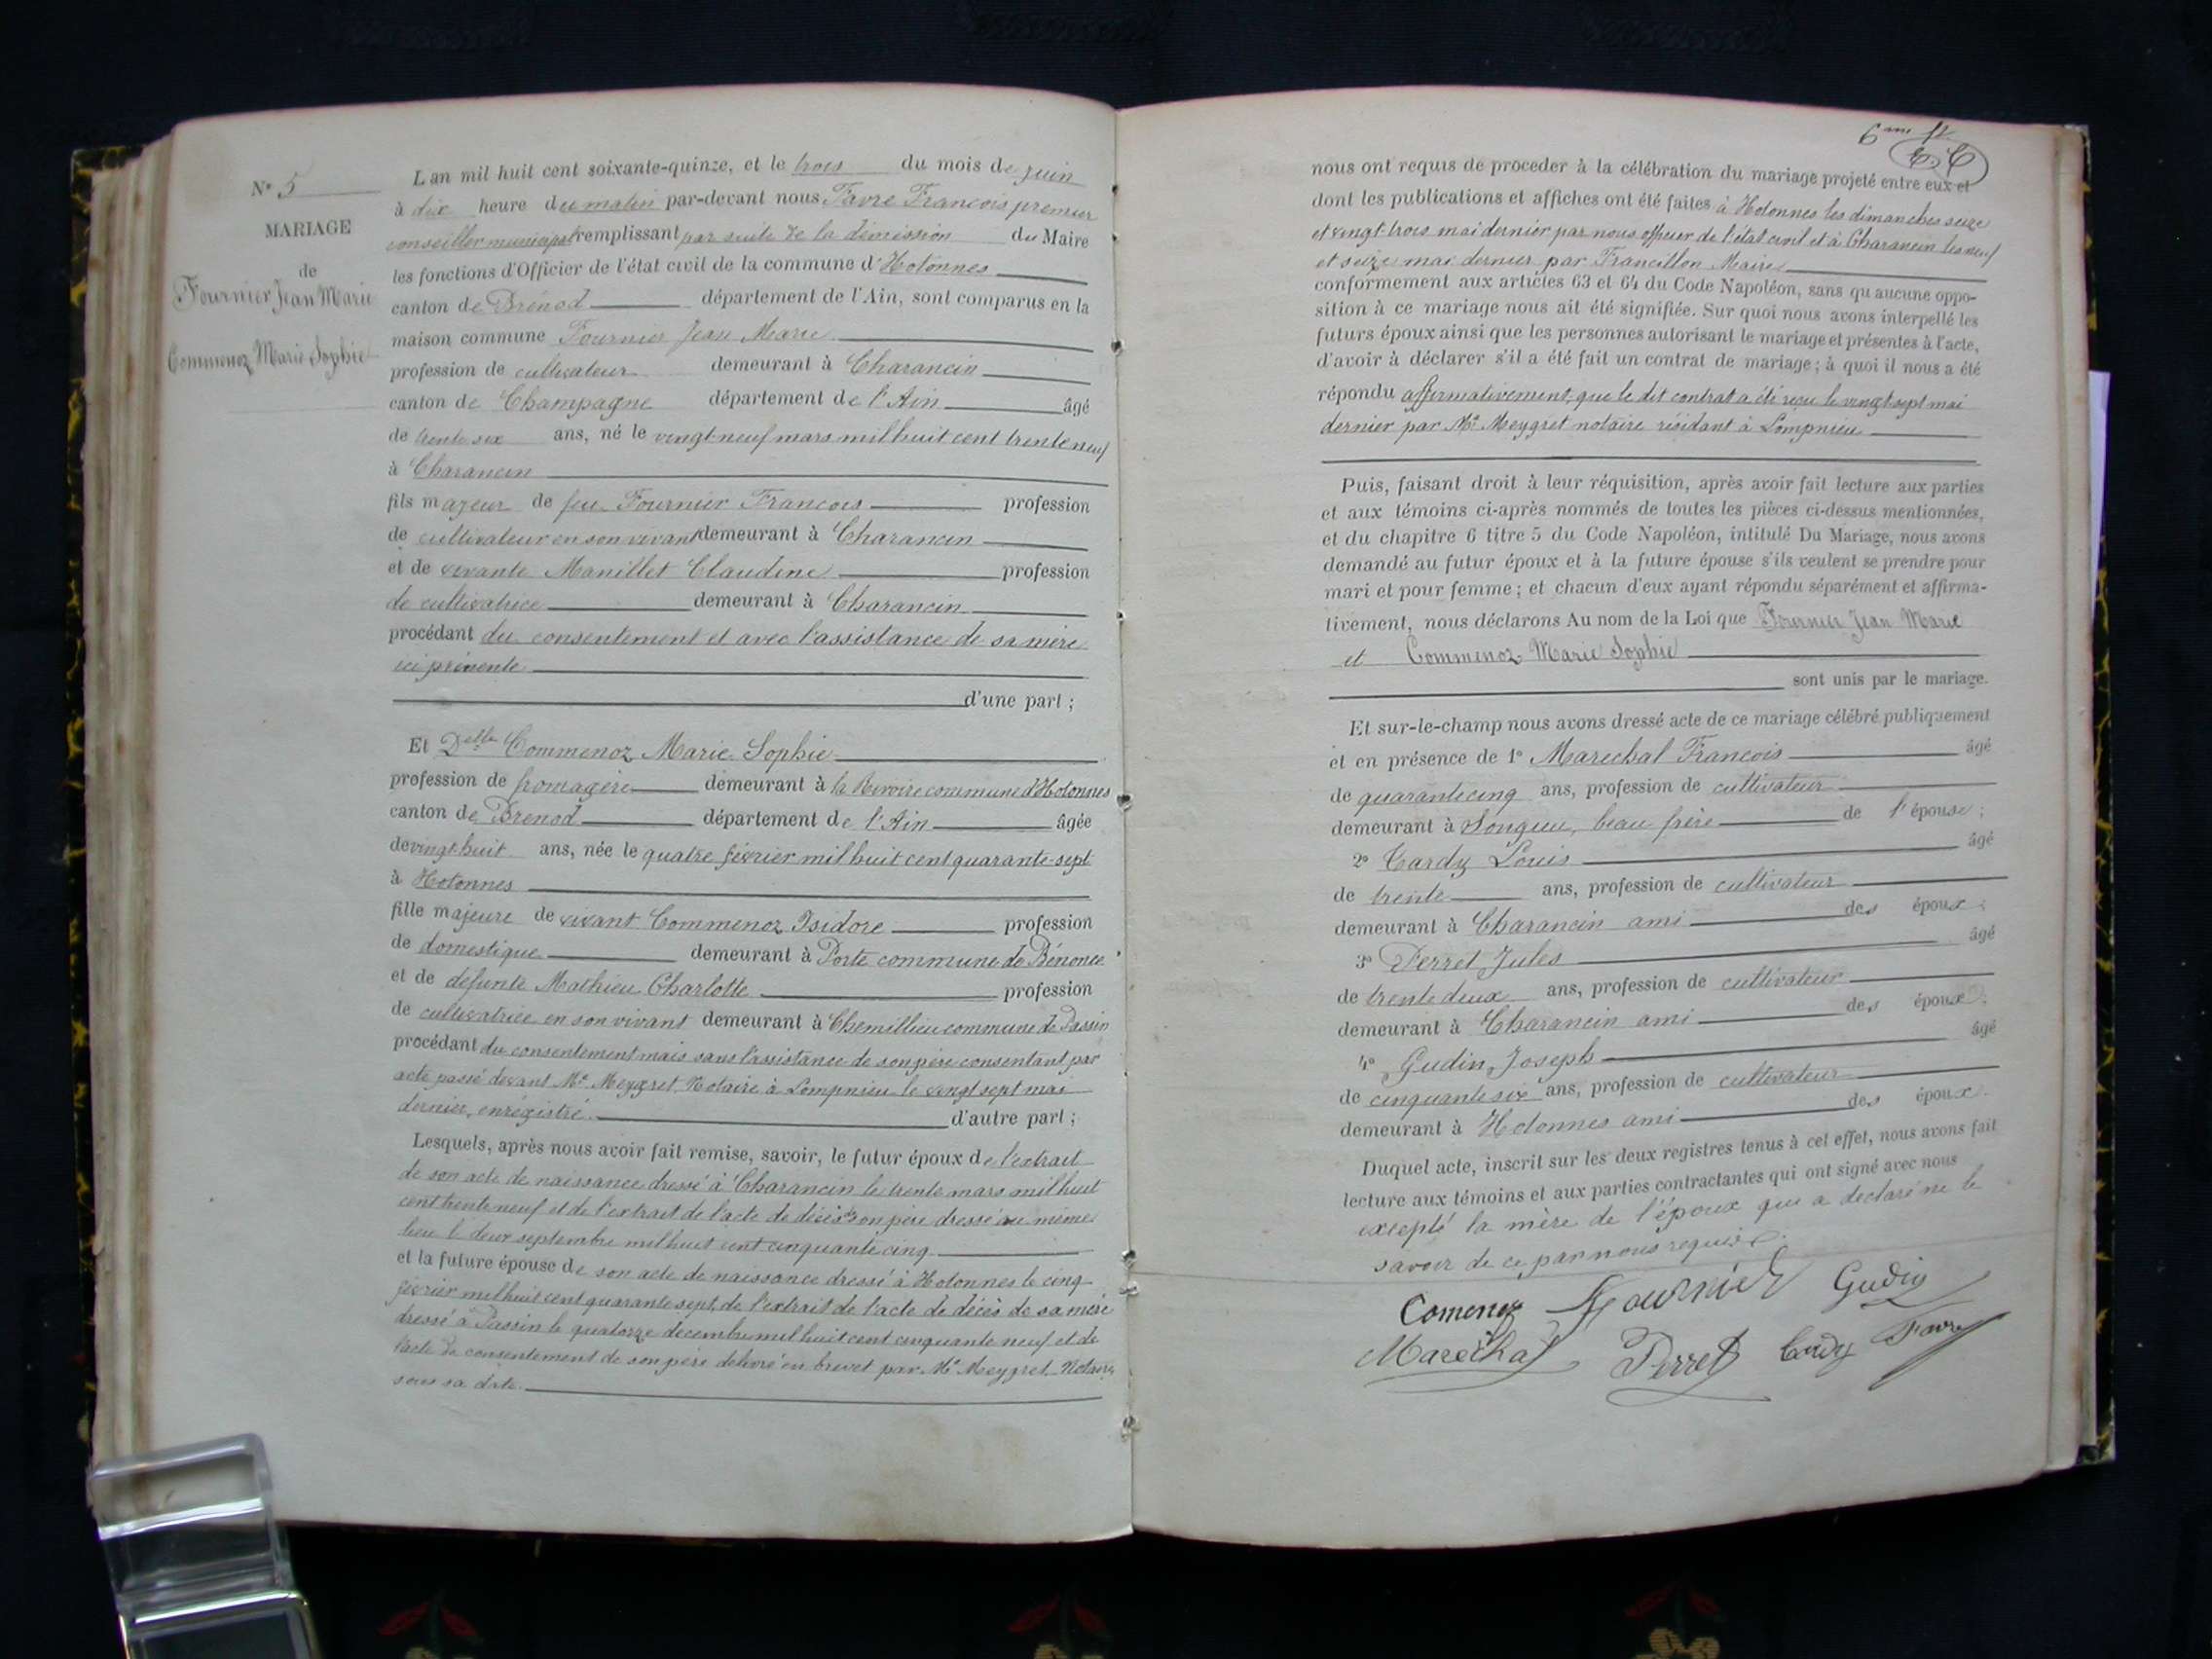 N° 5
MARIAGE
de
Fournier Jean Marie
Commenoz Marie Sophie
L'an mil huit cent soixante-quinze, et le trois du mois de juin
à dix heure du matin par-devant nous Favre Francois premier
conseiller municipal remplissant par suite de la démission du Maire
les fonctions d'Officier de l'état civil de la commune d'Hotonnes
canton de Brénod département de l'Ain, sont comparus en la
maison commune Fournier Jean Marie
profession de cultivateur demeurant à Charancin
canton de Champagne département de l'Ain âgé
de trente six ans, né le vingt-neuf mars mil huit cent trente neuf
à Charancin
fils majeur de feu Fournier Francois profession
de cultivateur en son vivant demeurant à Charancin
et de vivante Manillet Claudine profession
de cultivatrice demeurant à Charancin
procédant du consentement et avec l'assistance de sa mère
ici présente
d'une part ;
Et Delle Commenoz Marie Sophie
profession de fromagère demeurant à la commune d'Hotonnes
canton de Brenod département de l'Ain âgée
de vingt-huit ans, née le quatre février mil huit cent quarante-sept
à Hotonnes
fille majeure de vivant Commenoz Isidore profession
de domestique demeurant à Porte commune de Bénonce
et de défunte Mathieu Charlotte profession
de cultivatrice en son vivant demeurant à Chemillieu commune de Passin
procédant du consentement mais sans l'assistance de son père consentant par
acte passé devant Me Meygret Notaire à Lompnieu le vingt sept mai
dernier, enrégistré. d'autre part ;
Lesquels, après nous avoir fait remise, savoir, le futur époux de l'extrait
de son acte de naissance dressé à Charancin le trente mars mil huit
cent trente neuf et de l'extrait de l'acte de décès de son père dressé au même
lieu l deux septembre mil huit cent cinquante cinq
et la future épouse de son acte de naissance dressé à Hotonnes le cinq
février mil huit cent quarante sept, de l'extrait de l'acte de décès de sa mère
dressé à Passin le quatorze décembre mil huit cent cinquante neuf et de
l'acte de consentement de son père délivré en brevet par Me Meygret, Notaire,
sous sa date.
6
nous ont requis de proceder à la célébration du mariage projeté entre eux et
dont les publications et affiches ont été faites à Hotonnes les dimanches seize
et vingt-trois mai dernier par nous officier de l'état civil et à Charancin les neuf
et seize mai dernier par Francillon Maire
conformement aux articles 63 et 64 du Code Napoléon, sans qu'aucune oppo-
sition à ce mariage nous ait été signifiée. Sur quoi nous avons interpellé les
futurs époux ainsi que les personnes autorisant le mariage et présentes à l'acte,
d'avoir à déclarer s'il a été fait un contrat de mariage ; à quoi il nous a été
répondu affirmativement, que le dit contrat a été reçu le vingt sept mai
dernier par Me Meygret notaire résidant à Lompnieu
Puis, faisant droit à leur réquisition, après avoir fait lecture aux parties
et aux témoins ci-après nommés de toutes les pièces ci-dessus mentionnées,
et du chapitre 6 titre 5 du Code Napoléon, intitulé Du Mariage, nous avons
demandé au futur époux et à la future épouse s'ils veulent se prendre pour
mari et pour femme ; et chacun d'eux ayant répondu séparément et affirma-
tivement, nous déclarons Au nom de la Loi que Fournier Jean Marie
et Commenoz Marie Sophie
sont unis par le mariage.
Et sur-le-champ nous avons dressé acte de ce mariage célébré publiquement
et en présence de 1° Marechal Francois âgé
de quarante cinq ans, profession de cultivateur
demeurant à Songieu, beau frère de l'épouse ;
2° Cardy Louis âgé
de trente ans, profession de cultivateur
demeurant à Charancin ami des époux ;
3° Perret Jules âgé
de trente deux ans, profession de cultivateur
demeurant à Charancin ami des époux ;
4° Gudin Joseph âgé
de cinquante six ans, profession de cultivateur
demeurant à Hotonnes ami des époux.
Duquel acte, inscrit sur les deux registres tenus à cet effet, nous avons fait
lecture aux témoins et aux parties contractantes qui ont signé avec nous
excepté la mère de l'époux qui a declaré ne le
savoir de ce par nous requise.
Comenoz Fournier Gudin
Marechal Perret Cardy Favre